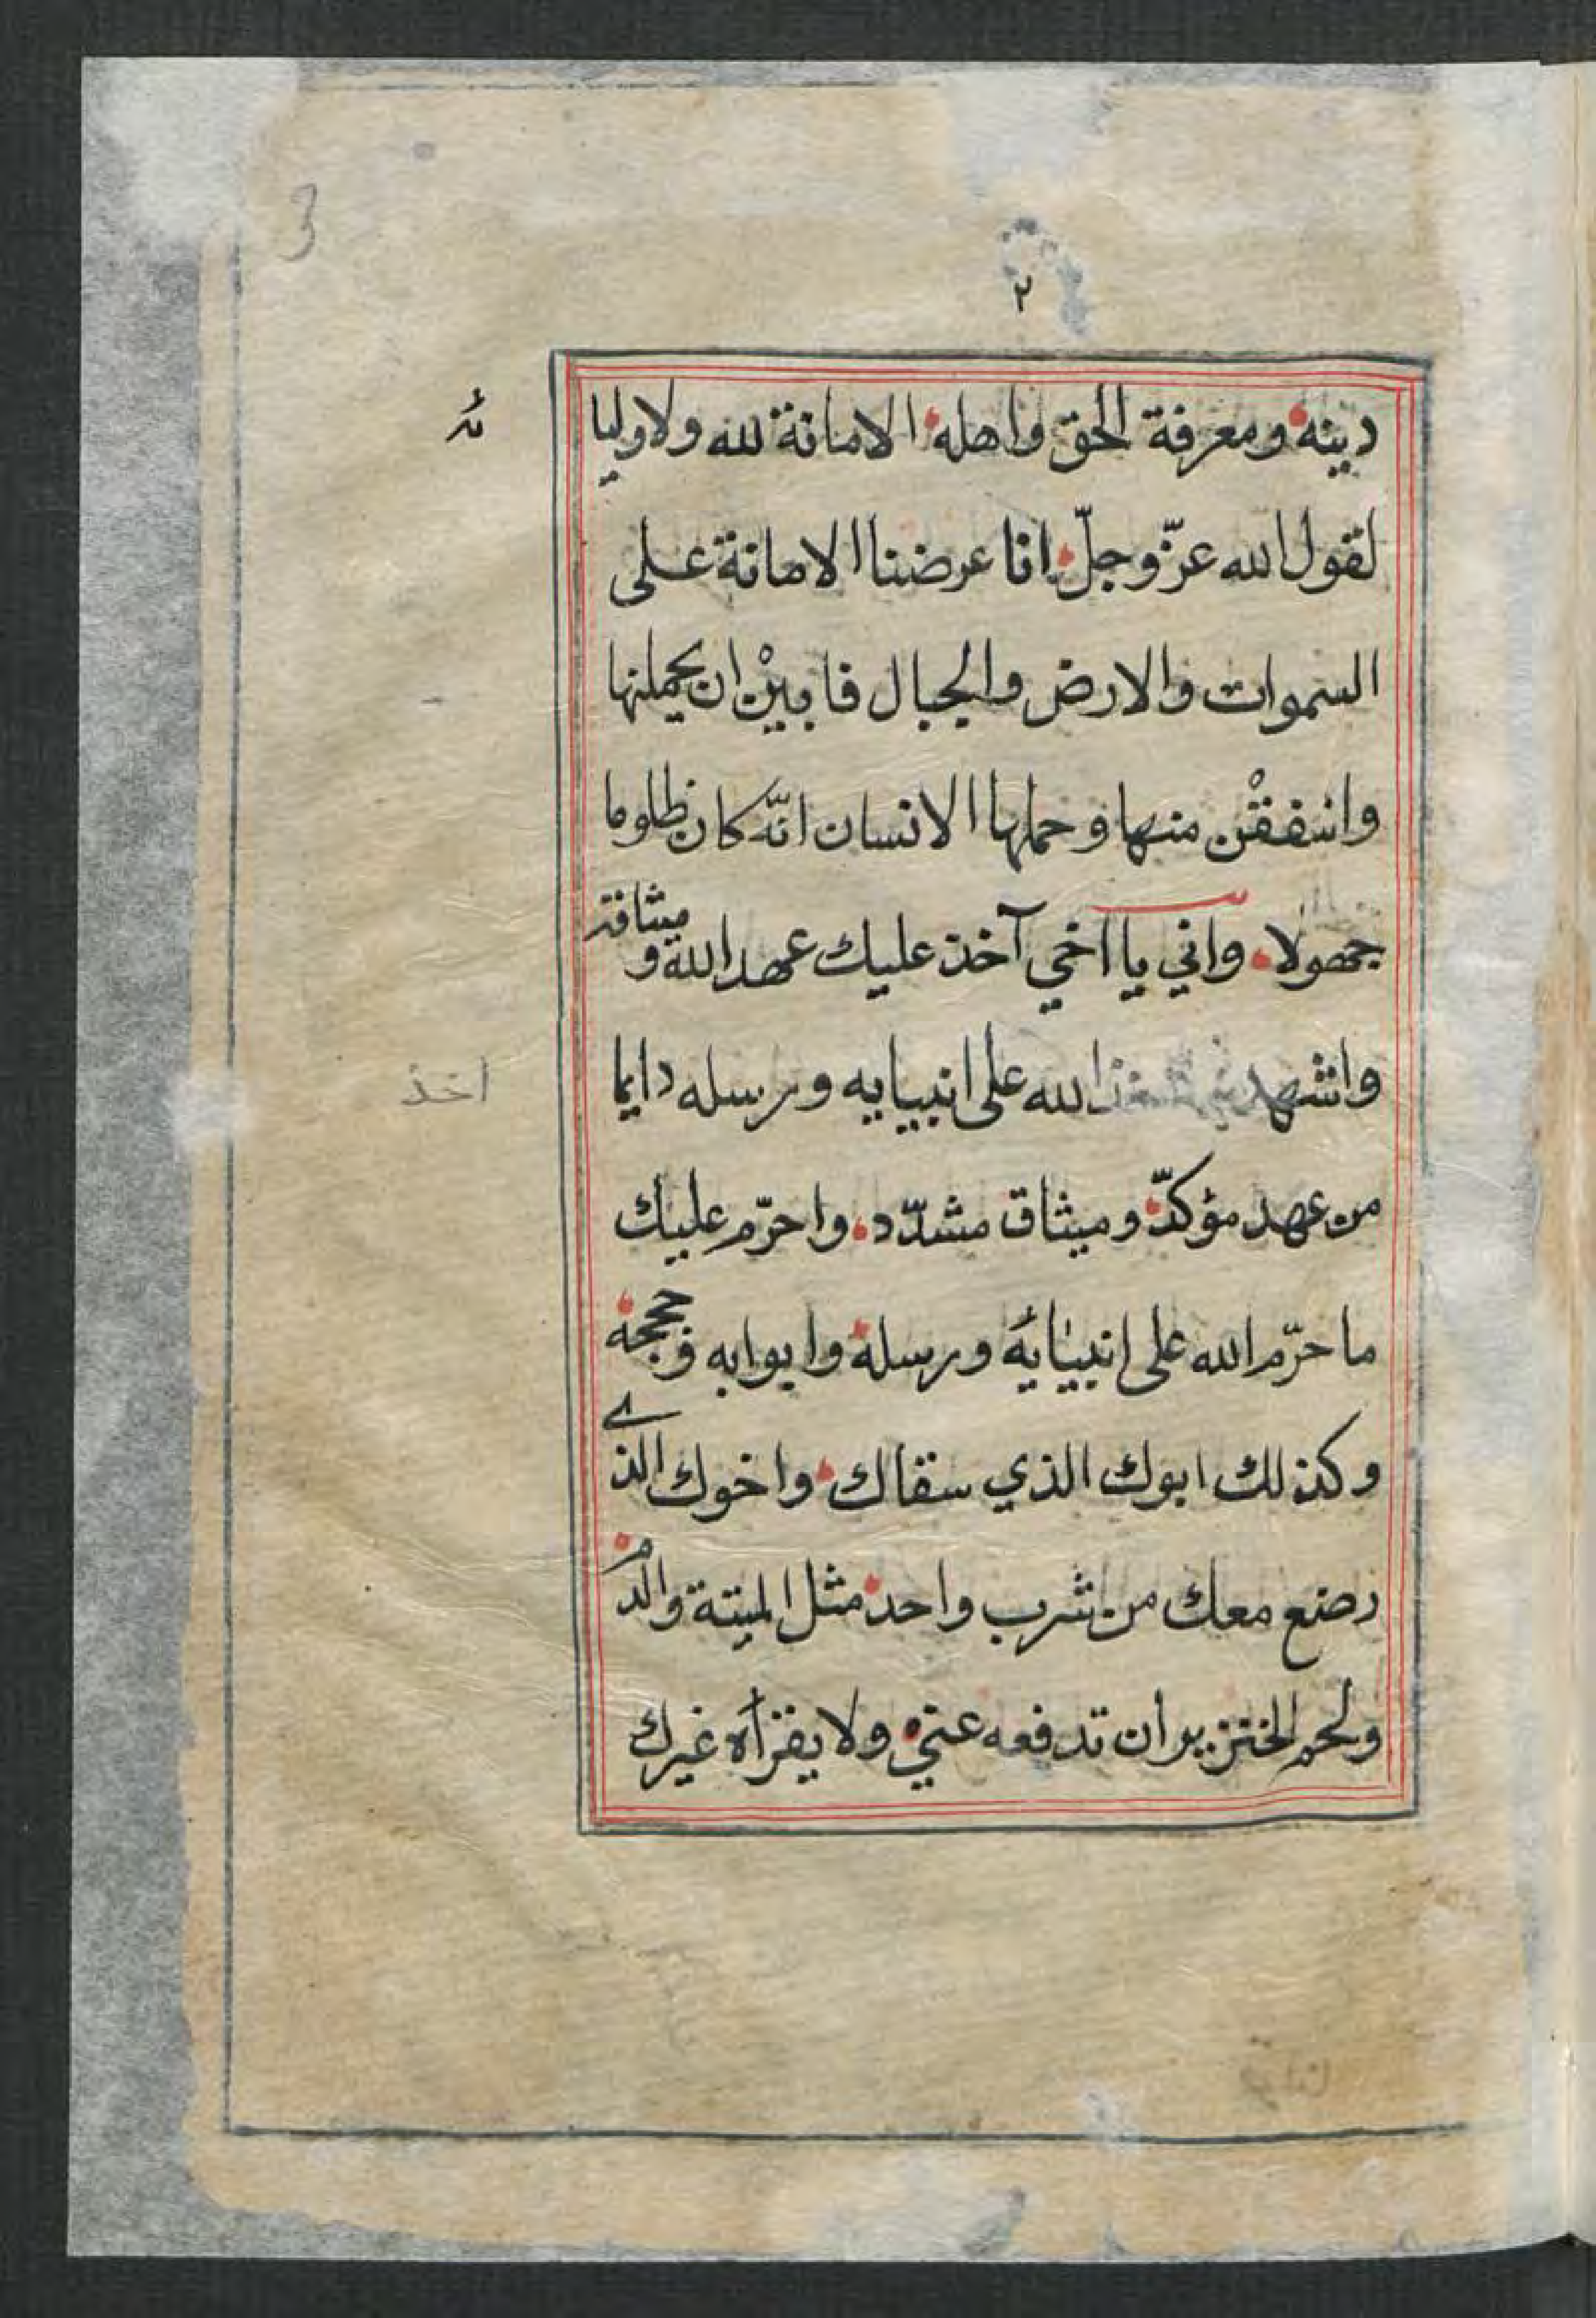 3
٢
دينه ومعرفة الحق واهله الامانة لله ولاوليا
ئه
لقول الله عزّ وجلّ انا عرضنا الامانة على
السموات والارض والجبال فابيْن ان يحملنها
واشفقْن منها وحملها الانسان انّه كان ظلوما
جهولا واني يا اخي آخذ عليك عهد الله وميثاقه
واشهد الله على انبيايه ورسله دايما
اخذ
من عهد مؤكدّ وميثاق مشدّد واحرّم عليك
ما حرّم الله على انبيائه ورسله وابوابه وحججه
وكذلك ابوك الذي سقاك واخوك الذي
رضع معك من شرب واحد مثل الميتة والدم
ولحم الخنزير ان تدفعه عني ولا يقرأه غيرك